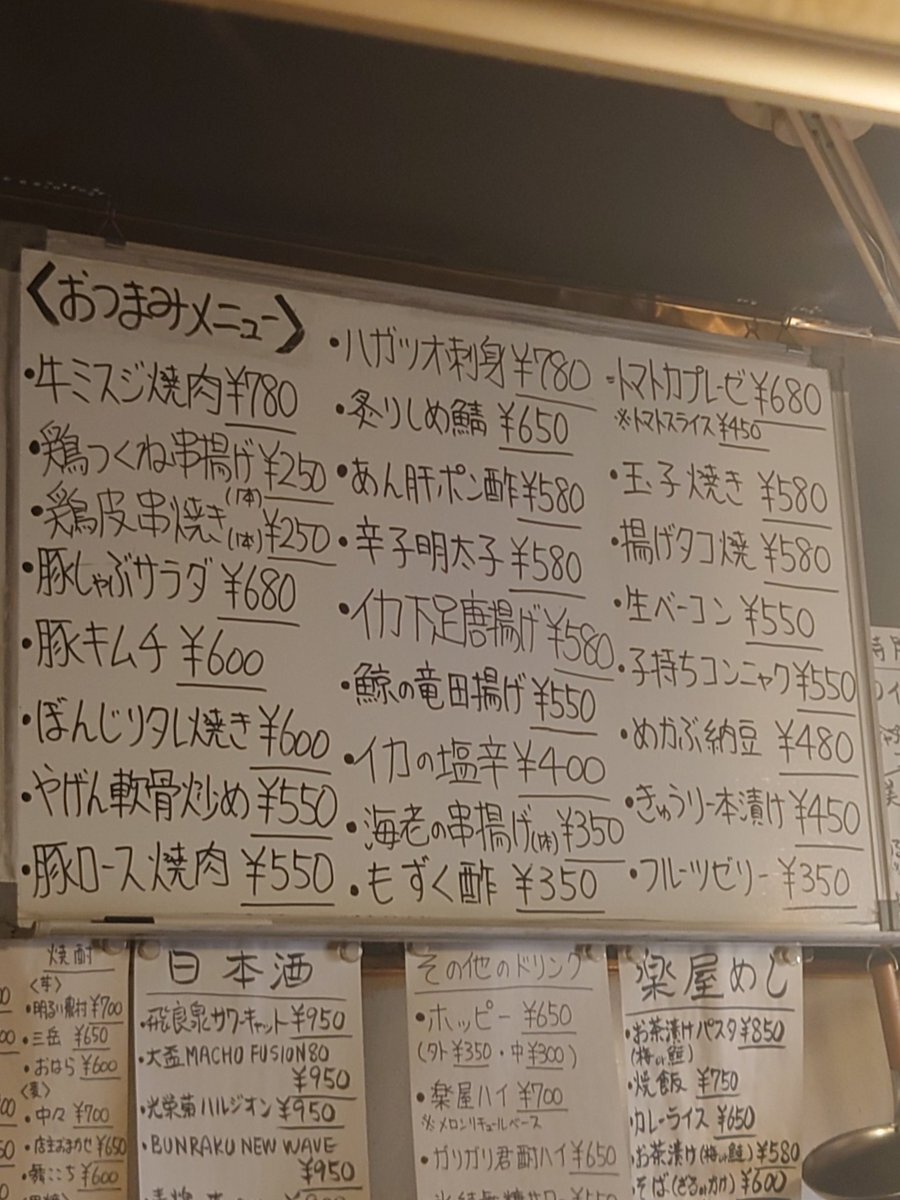 〈おつまみメニュー〉
・牛ミスジ焼肉 ¥780
・鶏つくね串揚げ(1本) ¥250
・鶏皮串焼き(1本) ¥250
・豚しゃぶサラダ ¥680
・豚キムチ ¥600
・ぼんじりタレ焼き ¥600
・やげん軟骨炒め ¥550
・豚ロース焼肉 ¥550
・ハガツオ刺身 ¥780
・炙りしめ鯖 ¥650
・あん肝ポン酢 ¥580
・辛子明太子 ¥580
・イカ下足唐揚げ ¥580
・鯨の竜田揚げ ¥550
・イカの塩辛 ¥400
・海老の串揚げ(1本) ¥350
・もずく酢 ¥350
・トマトカプレーゼ ¥680
※トマトスライス ¥450
・玉子焼き ¥580
・揚げタコ焼 ¥580
・生ベーコン ¥550
・子持ちコンニャク ¥550
・めかぶ納豆 ¥480
・きゅうり一本漬け ¥450
・フルーツゼリー ¥350
焼酎
〈芋〉
・明るい農村 ¥700
・三岳 ¥650
・おはら ¥600
〈麦〉
・中々 ¥700
・店主おまかせ ¥650
・舞ここち ¥600
日本酒
・飛良泉サワーキャット ¥950
・大盃 MACHO FUSION 80
¥950
・光栄菊ハルジオン ¥950
・BUNRAKU NEW WAVE
¥950
その他のドリンク
・ホッピー ¥650
(外 ¥350・中 ¥300)
・楽屋ハイ ¥700
※メロンリキュールベース
・ガリガリ君酎ハイ ¥650
楽屋めし
・お茶漬けパスタ ¥850
(梅or鮭)
・焼飯 ¥750
・カレーライス ¥650
・お茶漬け(梅or鮭) ¥580
・そば(ざるorかけ) ¥600